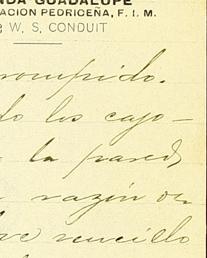 NDA GUADALUPE
ACION PEDRICEÑA, F. I. M.
e W. S. CONDUIT
rompido.
do los cajo-
la pared
razón de
sencillo